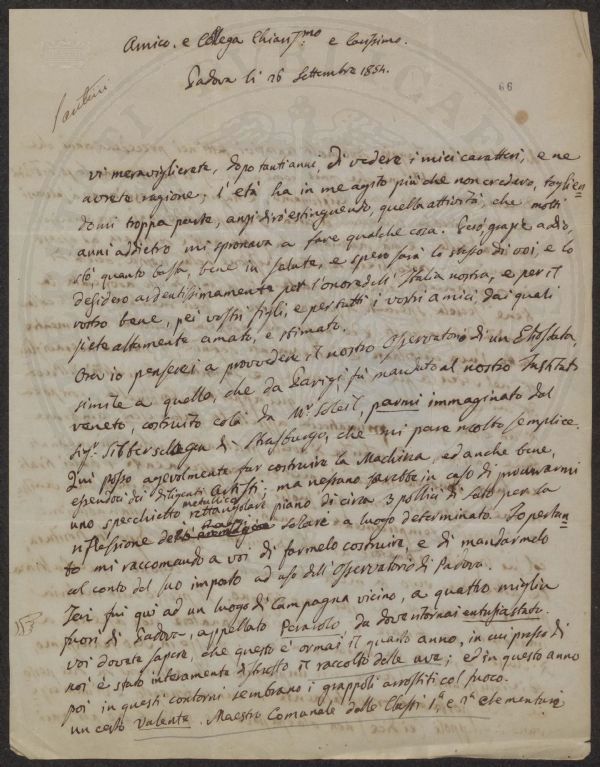 Amico e Collega Chiariss.mo e Carissimo.
Padova li 26 Settembre 1854.
66
Santini
vi meraviglierete, dopo tanti anni, di vedere i miei caratteri, e ne
avrete ragione; l'età ha in me agito più che non credevo, toglien-
domi troppa parte, anzi dirò estinguendo, quella attività, che molti
anni addietro mi spronava a fare qualche cosa. Però, grazie a dio,
stò, quanto basta, bene in salute, e spero sarà lo stesso di voi, e lo
desidero ardentissimamente per l'onore dell'Italia nostra, e per il
vostro bene, pei vostri figli, e per tutti i vostri amici, dai quali
siete altamente amato, e stimato.
Ora io penserei a provvedere il nostro Osservatorio di un Eliostata,
simile a quello, che da Parigi fù mandato al nostro Instituto
veneto, costruito colà da Mr. Soleil, parmi immaginato dal
Sigr. di Strasburgo, che mi pare molto semplice.
Qui posso agevolmente far costruire la Macchina, ed anche bene,
essendoci dei diligenti Artisti; ma nessuno sarebbe in caso di procurarmi
uno specchietto metallico rettangolare piano di circa 3 pollici di lato per la
riflessione solare a luogo determinato. Io pertan-
to mi raccomando a voi di farmelo costruire, e di mandarmelo
col conto del suo importo ad uso dell'Osservatorio di Padova.
Jeri fui qui ad un luogo di Campagna vicino, a quattro miglia
fuori di Padova, appellato da dove ritornai entusiastato.
voi dovete sapere, che questo è ormai il quarto anno, in cui presso di
noi è stato interamente distrutto il raccolto delle uve; ed in questo anno
poi in questi contorni sembrano i grappoli arrostiti col fuoco.
un certo Valente Maestro Comunale delle Classi 1.a e 2.a elementari